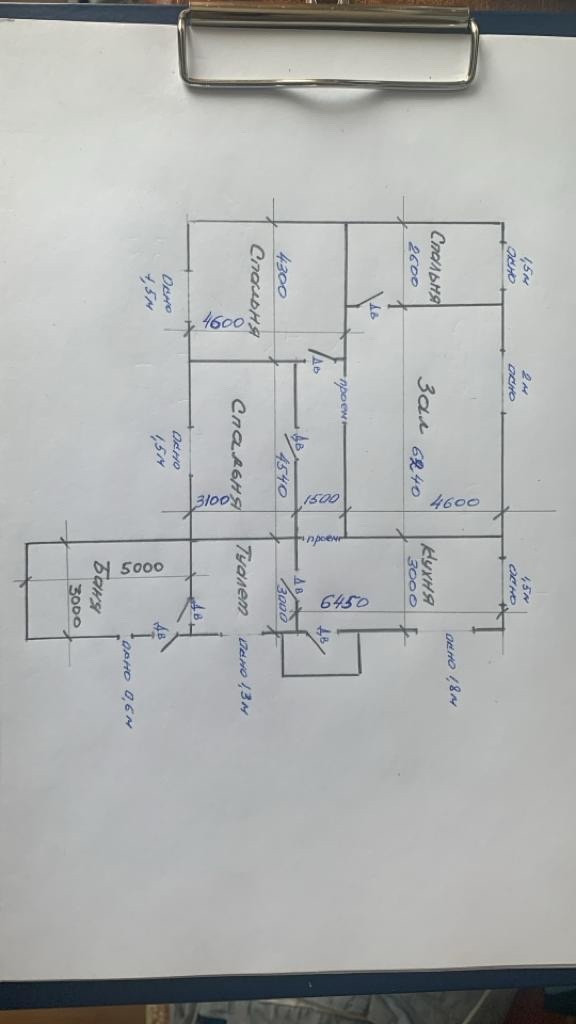 1,5м
окно
Спальня
2600
Спальня
4300
4600
окно
1,5м
Дв
Дв
2м
окно
проем
Зал
6240
4600
Спальня
Дв
4540
1500
3100
окно
1,5м
проем
Кухня
3000
1,5м
окно
Туалет
3000
Дв
6450
Дв
окно 1,8м
Баня
5000
3000
Дв
Дв
окно 1,3м
окно 0,6м